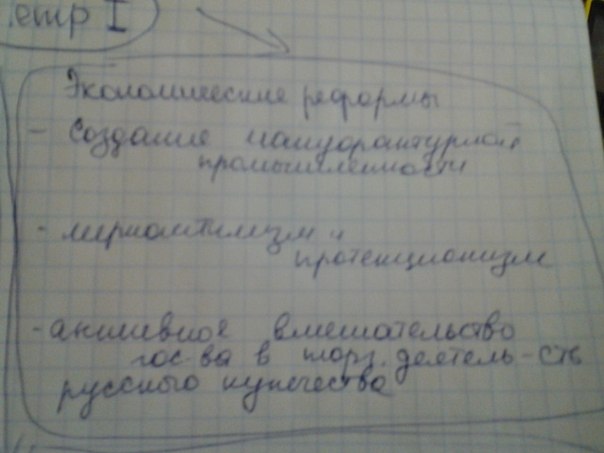 етр I
Экономические реформы
- Создание мануфактурной
промышленности
- меркантилизм и
протекционизм
- активное вмешательство
гос-ва в торг. деятель-сть
русского купечества